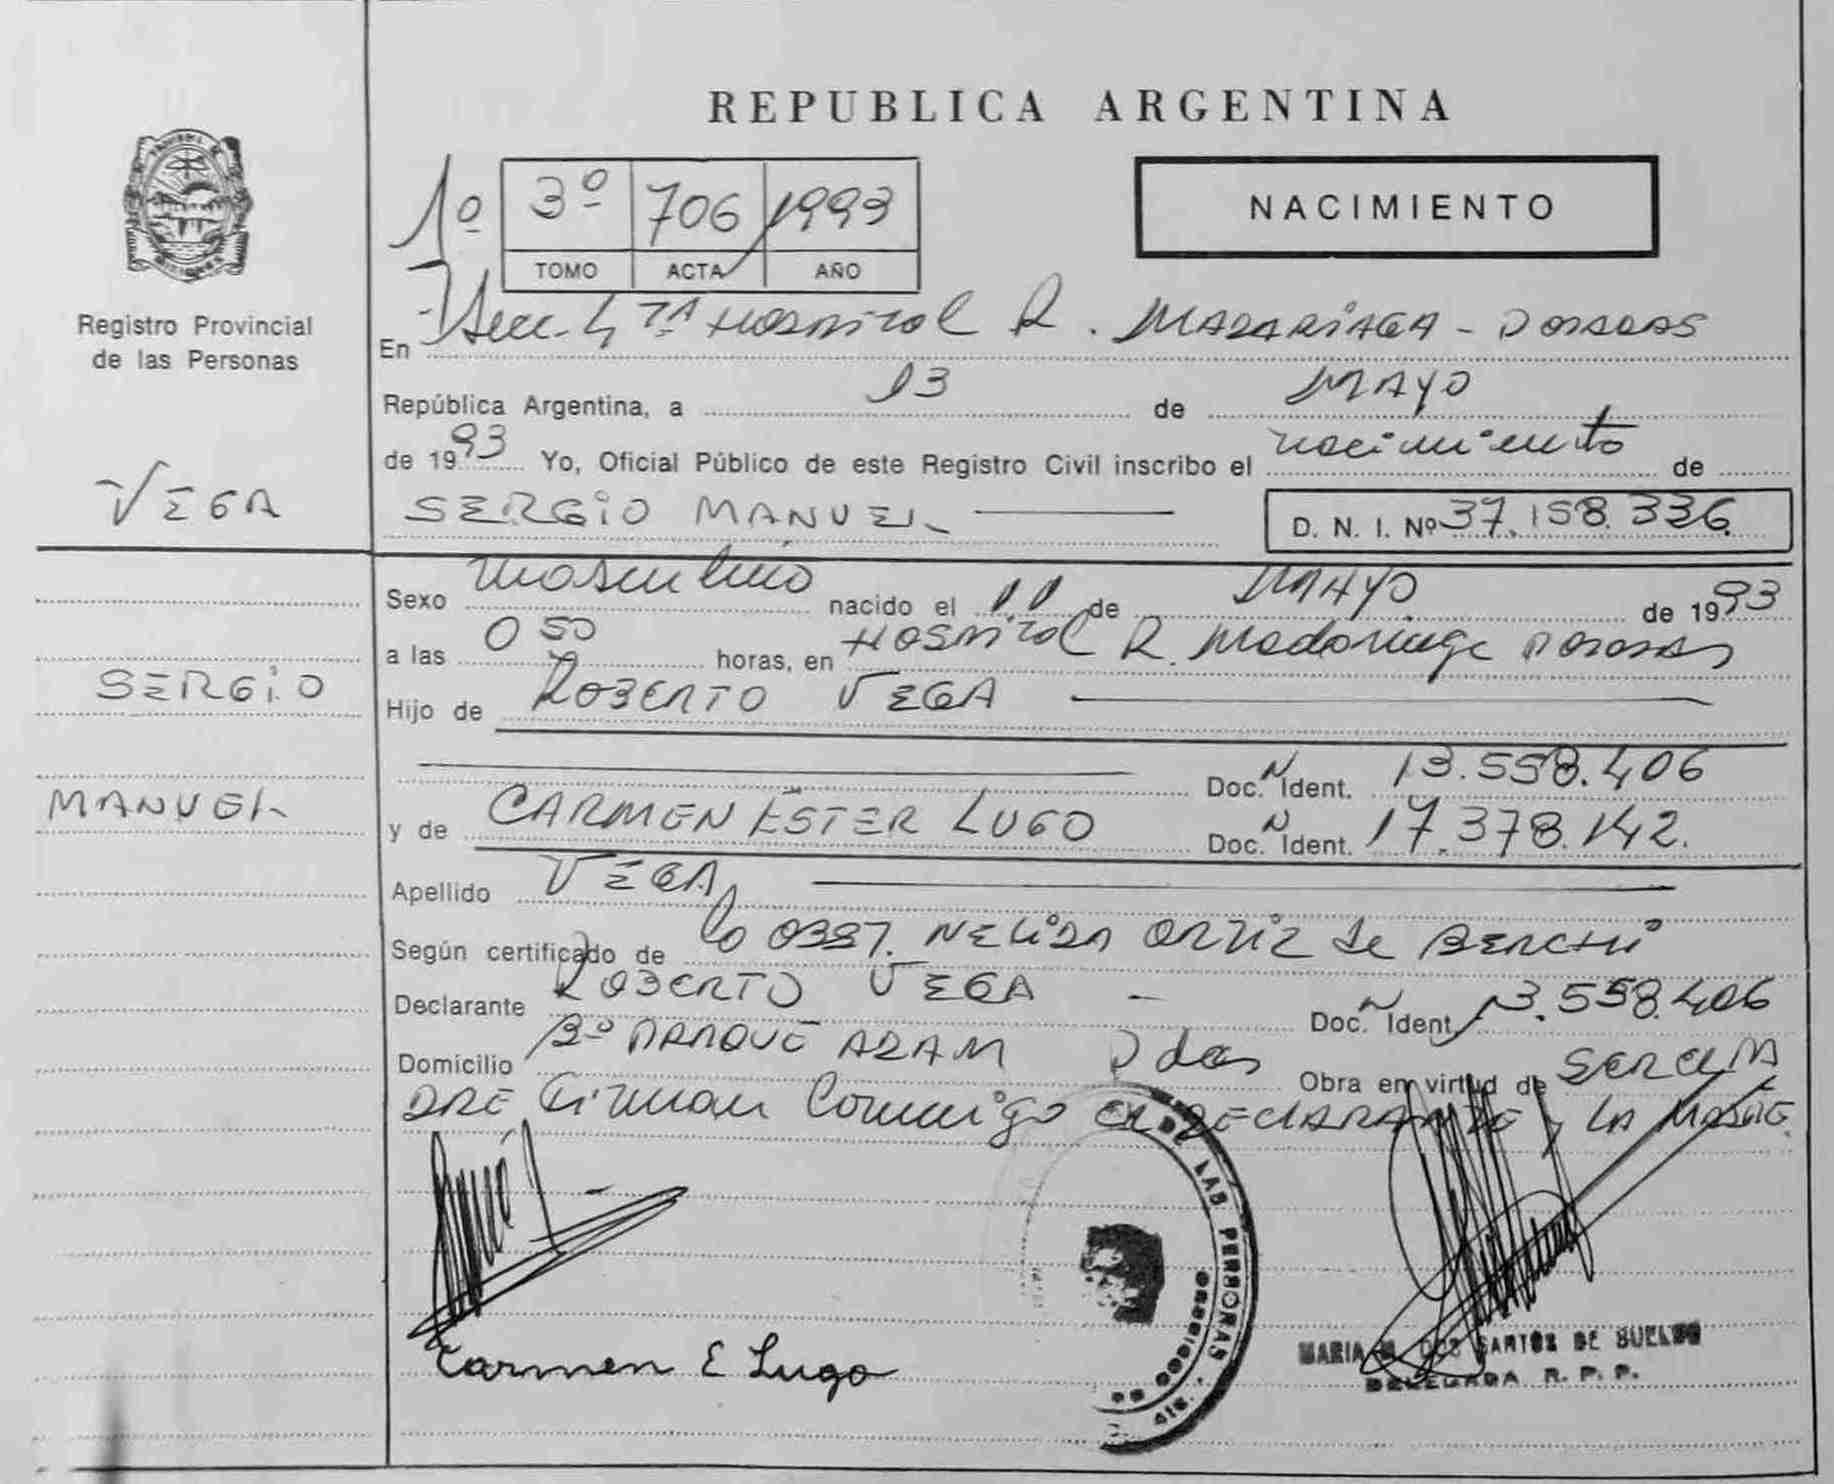 REPUBLICA ARGENTINA
NACIMIENTO
1º 3º 706 1993
TOMO ACTA AÑO
Registro Provincial
de las Personas
En Secc. 4 TA Hospital R. MADARIAGA - POSADAS
República Argentina, a 13 de MAYO
de 1993 Yo, Oficial Público de este Registro Civil inscribo el nacimiento de
VEGA
SERGIO MANUEL D. N. I. Nº 37.158.336
Sexo masculino nacido el 11 de MAYO de 1993
a las 0 50 horas, en HOSPITAL R. Madariaga POSADAS
SERGIO
Hijo de ROBERTO VEGA
Doc. N Ident. 13.558.406
MANUEL
y de CARMEN ESTER LUGO Doc. N Ident. 17.378.142.
Apellido VEGA
Según certificado de 0387. NELIDA ORTIZ de
Declarante ROBERTO VEGA - Doc. N Ident. 13.558.406
Domicilio Bº PARQUE ADAM Pdas Obra en virtud de SER EL PA
DRE Firman Conmigo EL DECLARANTE y LA MADRE
Carmen E Lugo
DE LAS PERSONAS
MARIA DOS SANTOS DE
DELEGADA R. P. P.